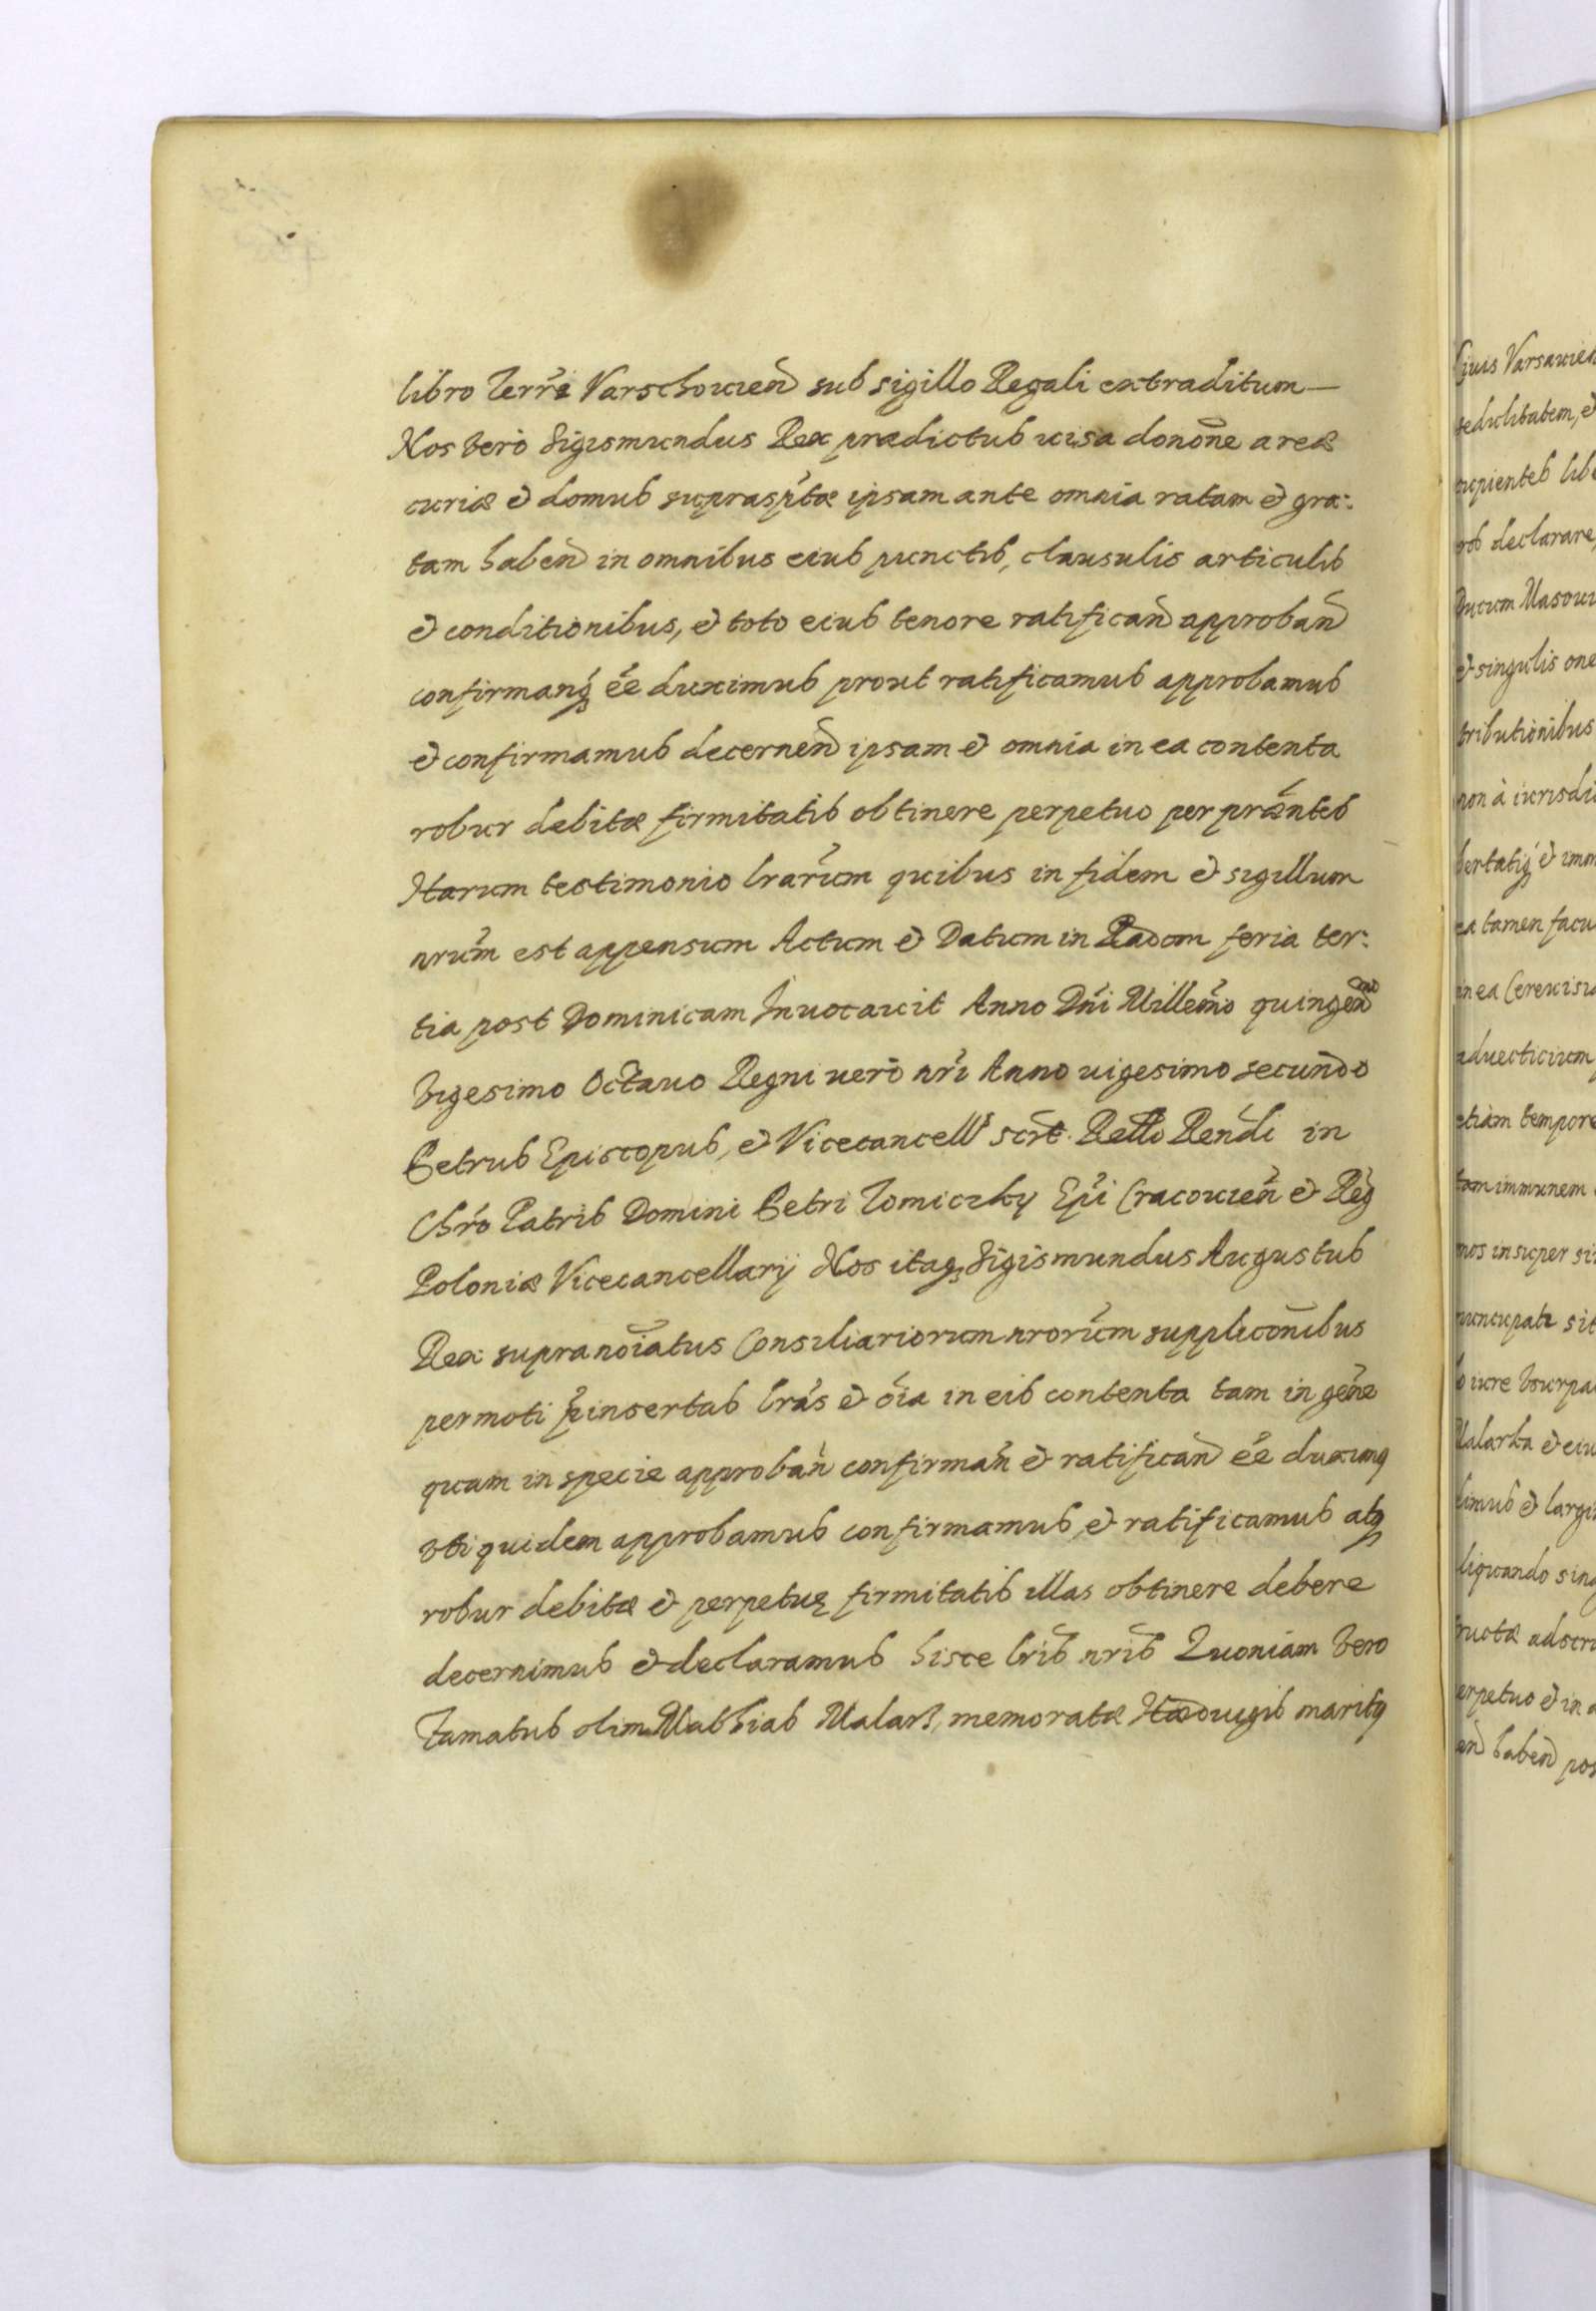 libro Terrĩ Varschouien̄ sub sigillo Regali extraditum —
Nos Verò Sigismundus Rex prædictus uisa donoñe areæ
curiæ et domus suprasp̃tæ ipsam ante omnia ratam et gra:
tam haben̄ in omnibus eius punctis, clausulis articulis
et conditionibus, et toto eius tenore ratifican̄ approban̄
confirmanq́ₓ ẽe duximus prout ratificamus approbamus
et confirmamus decernen̄ ipsam et omnia in ea contenta
robur debitæ firmitatis obtinere perpetuo per præñtes
Harum testimonio lrãrum quibus in fidem et sigillum
nrũm est appensum Actum et Datum in Radom feria ter:
tia post Dominicam Inuocauit Anno Dñi Millem̃o quingen̄mo
Vigesimo Octauo Regni uerò nrĩ Anno uigesimo secundo
Petrus Episcopus, et Vicecancell̃s scr̃t. Rello Rendi in
Chrõ Patris Domini Petri Tomiczky Ep̃i Cracouien̄ et Reg̃
Poloniæ Vicecancellarij Nos itaqₓ Sigismundus Augustus
Rex supranoĩatus Consiliariorum nrorũm supplicoñibus
permoti p̃insertas lrãs et õia in eis contenta tam in geñe
quam in specie approban̄ confirman̄ et ratifican̄ ẽe duximq
Vti quidem approbamus confirmamus, et ratificamus atqₓ
robur debitæ et perpetuę firmitatis illas obtinere debere
decernimus et declaramus hisce lrĩs nrĩs Quoniam Vero
Famatus olim Mathias Malarz, memoratæ Hæduigis maritq
giuis Varsauien
sedulitatem, et
cupientes lib
declarare
Ducum Masoui
et singulis one
tributionibus
non à iurisdi
bertatiq́ₓ et imm
ea tamen facu
in ea Cereuisia
aduecticium
etiàm tempore
tam immunem
mos insuper si
nuncupati sit
iure Vsurpa
Malarta et eiu
limus et largi
liquando sing
ructæ adscri
erpetuo et in
haben̄ pos